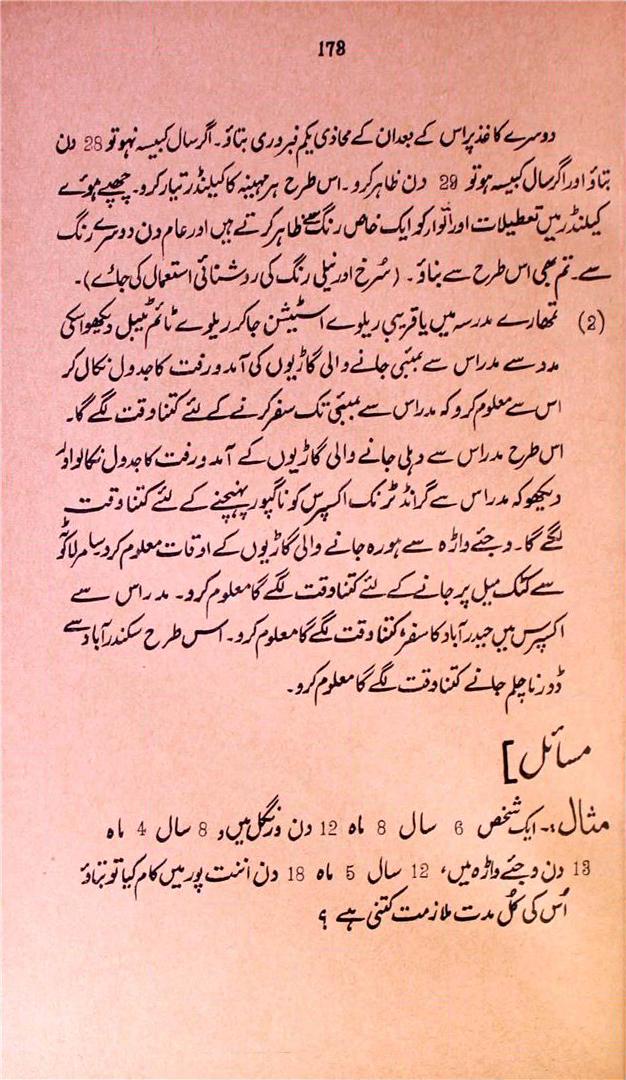 178
دوسرے کاغذ پر اس کے بعد ان کے محاذی یکم فبروری بتاؤ۔ اگر سال کبیسہ نہو تو 28 دن
بتاؤ اور اگر سال کبیسہ ہو تو 29 دن ظاہر کرو۔ اس طرح ہر مہینہ کا کیلنڈر تیار کرو۔ چھپے ہوئے
کیلنڈر میں تعطیلات اور اتوار کو ایک خاص رنگ سے ظاہر کرتے ہیں اور عام دن دوسرے رنگ
سے۔ تم بھی اس طرح سے بناؤ۔ (سُرخ اور نیلی رنگ کی روشنائی استعمال کی جائے)۔
(2) تمھارے مدرسہ میں یا قریبی ریلوے اسٹیشن جاکر ریلوے ٹائم ٹیبل دیکھو اسکی
مدد سے مدراس سے بمبئی جانے والی گاڑیوں کی آمد ورفت کا جدول نکال کر
اس سے معلوم کرو کہ مدراس سے بمبئی تک سفر کرنے کے لئے کتنا وقت لگے گا۔
اس طرح مدراس سے دہلی جانے والی گاڑیوں کے آمد ورفت کا جدول نکالو اور
دیکھو کہ مدراس سے گرانڈ ٹرنک اکسپرس کو ناگپور پہنچنے کے لئے کتنا وقت
لگے گا۔ وجئے واڑہ سے ہورہ جانے والی گاڑیوں کے اوقات معلوم کرو سامرلاکوٹہ
سے کٹک میل پر جانے کے لئے کتنا وقت لگے گا معلوم کرو۔ مدراس سے
اکسپرس میں حیدرآباد کا سفر، کتنا وقت لگے گا معلوم کرو۔ اس طرح سکندرآباد سے
ڈورناچلم جانے کتنا وقت لگے گا معلوم کرو۔
مسائل]
مثال:۔ ایک شخص 6 سال 8 ماہ 12 دن ورنگل میں، 8 سال 4 ماہ
13 دن وجئے واڑہ میں، 12 سال 5 ماہ 18 دن اننت پور میں کام کیا تو بتاؤ
اُس کی کُل مدت ملازمت کتنی ہے ؟